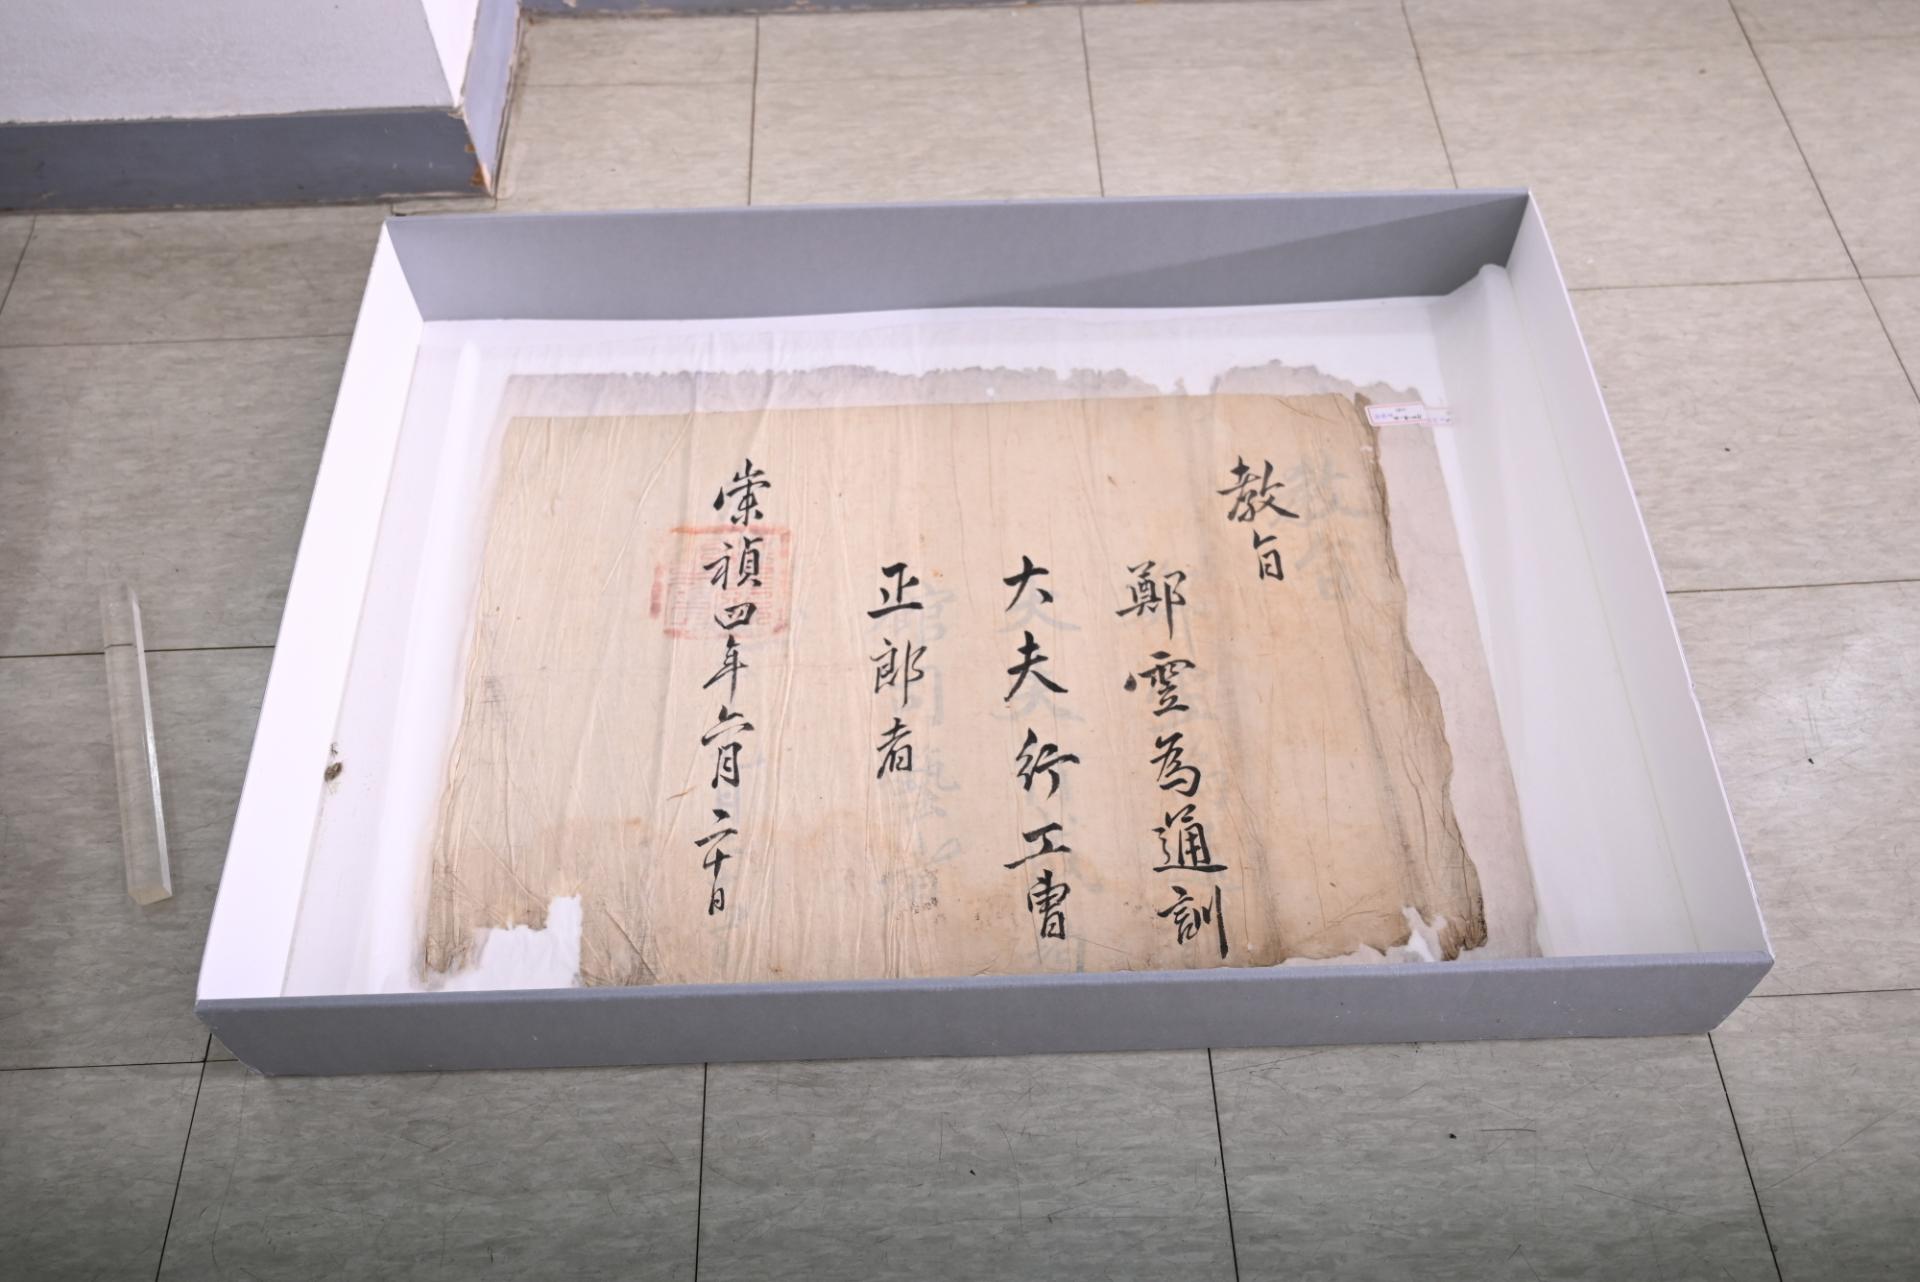 教旨
鄭霊為通訓
大夫行工曺
正郎者
崇禎四年六月二十日